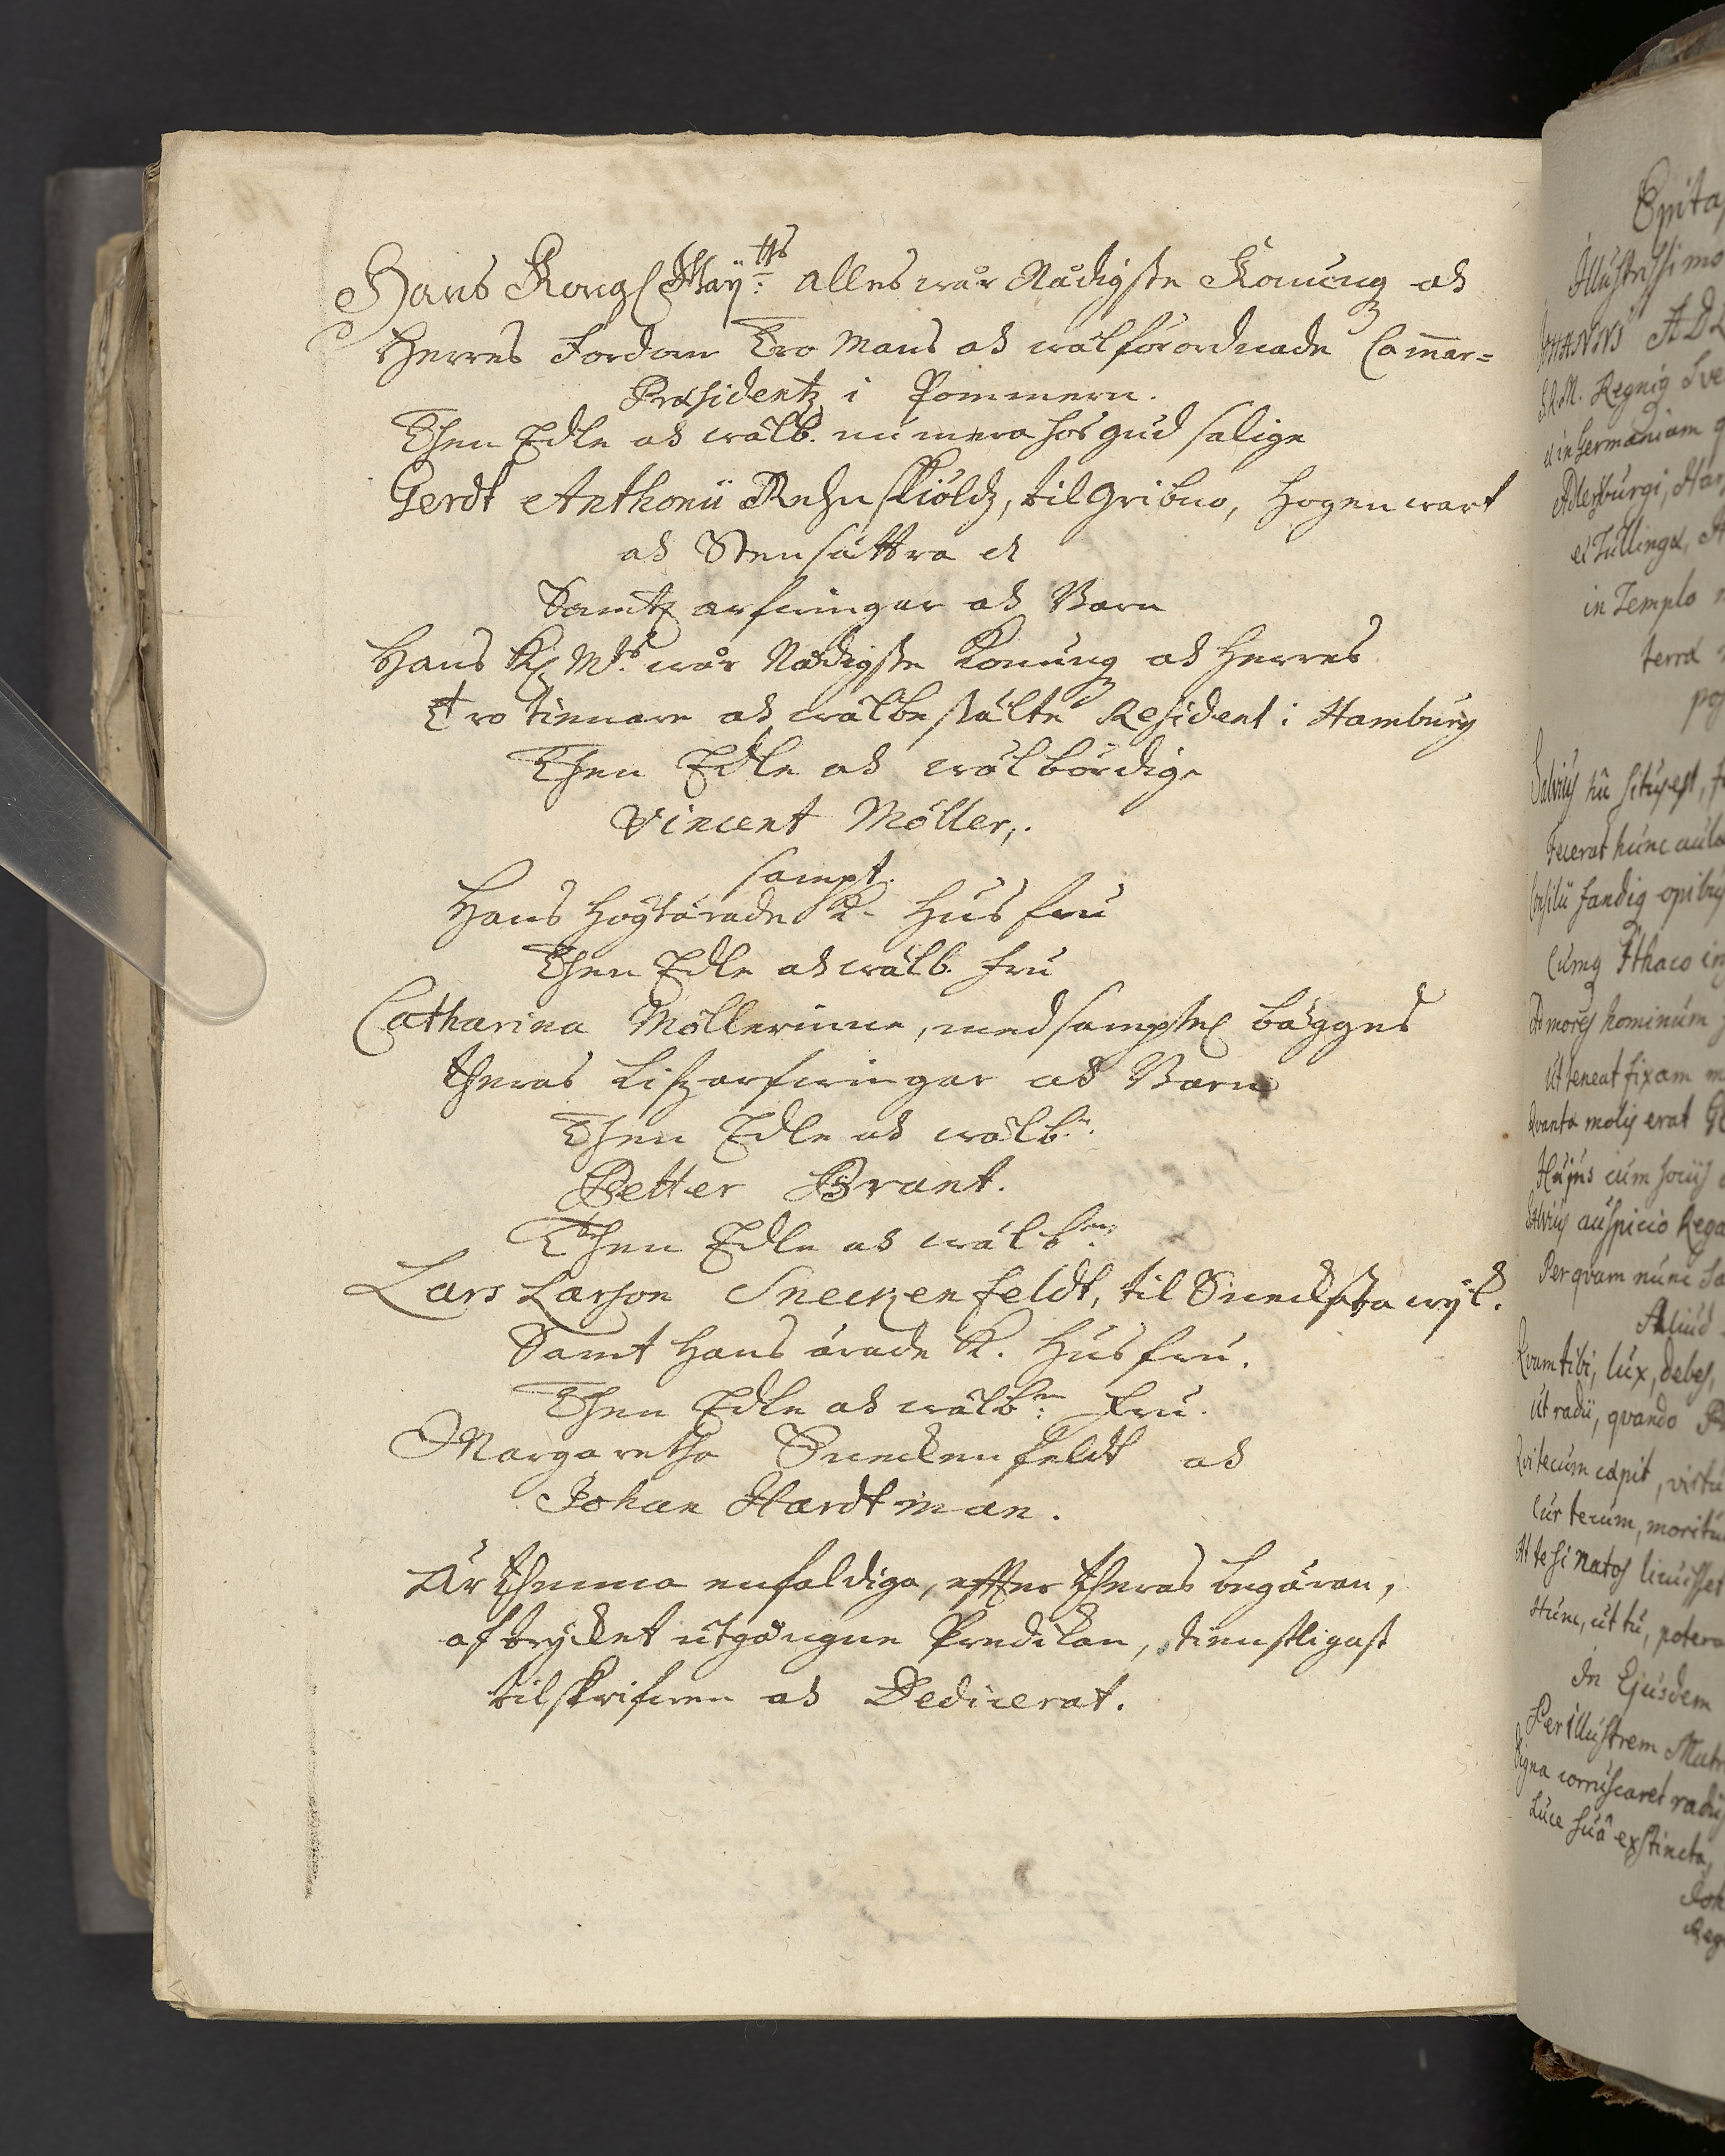 Hans Kongl May:tts alles wår Nådigste Konung och
Herres Fordom Tro Mans och wälförordnade Cam̄er=
Præsidentz i Pommern.
Then Edle och wälb. numera hos gud salige
Gerdt Anthonii Rehnskiöldz, til Gribno, Hogenwart
och Stensättra etc
Samtl arfwingar och Barn
Hans Kl Mtz wår Nådigste Konung och Herres
Tro tienare och wälbestälte Resident i Hamburg
Then Edle och wälbördige
Vincent Möller,.
sampt.
Hans höytärade K. Husfru
Then Edle och wälb. Fru
Catharina Möllerinne, medsamptel bägges
theras Lifzarfwingar och Barn
Then Edle och wälb:n.
Petter Brant.
Then Edle och wälb:n
Lars Larson Sneckenfeldt, til Sneckestawijk.
Samt Hans ärade K. Husfru.
Then Edle och wälb:n Fru.
Margaretha Sneckenfeldt och
Johan Hardtman.
Är thenna enfaldiga, effter theras begäran,
af trycket utgångne Predikan, tienstligast
tilskrifwen och Dedicerat.
Illustrissimo
JOHANNIS ADL
S.R.M. Regniq Sve
et in Germaniam
Adlersburgi, Har
et Tullingæ,
in Templo
terra
Salvius hic situs est,
Fecerat hunc aula
Consilii fandiq opibus
Cumq Ithaco in
Ad mores hominum
Ut teneat fixam
Quanta molis erat
Hujus cum sociis
Salvius auspicio Rega
Per qvam nunc
Aliud
Qvam tibi, lux, debes,
Ut radii, qvando
Qui tecum capit, virtu
Cur tecum, moritu
At te si natos licuisset
Hunc, ut tu, potera
In Ejusdem
Perillustrem Matr
Digna corruscaret radiis
Luce suâ extincta,